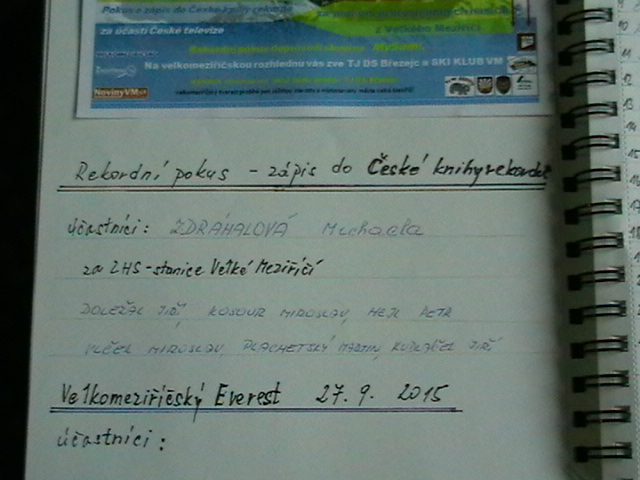 Pokus o zápis do České knihy rekordů
za účasti České televize
z Velkého Meziříčí
Na velkomeziříčskou rozhlednu vás zve TJ DS Březejc a SKI KLUB VM
NovinyVM.cz
Rekordní pokus - zápis do České knihy rekordů
účastníci: ZDRÁHALOVÁ Michaela
za ZHS-stanice Velké Meziříčí
DOLEŽAL JIŘÍ, KOSOUR MIROSLAV, HEJL PETR
VLČEK MIROSLAV, PLACHETSKÝ MARTIN, JIŘÍ
Velkomeziříčský Everest 27.9. 2015
účastníci: